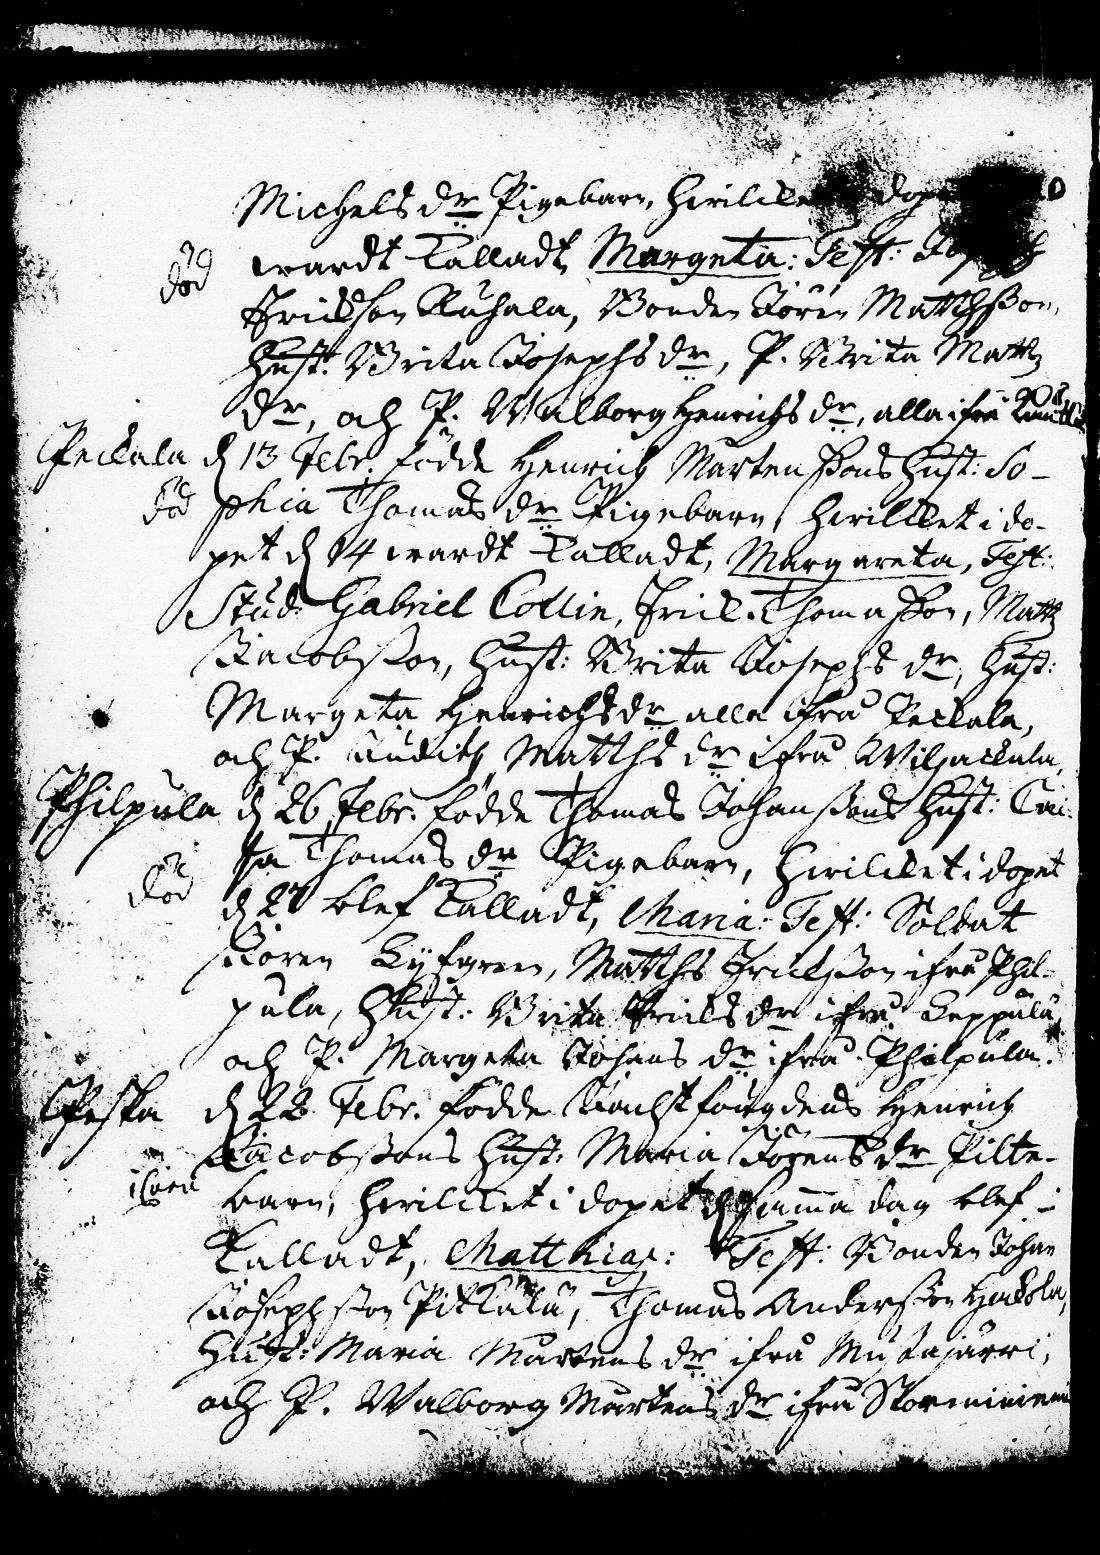 Michels dr Pigebarn, hvilket i dope
död
wardt kalladt, Margeta: Test: Joseph
Erickson Ruhala, Bonden Jören Matthsson,
Hust: Brita Josephs dr, P. Brita Matth
dr, och P. Walborg Henrichs dr, alla ifrå
Peckala d 13 Febr. födde Henrich Mårtenssons Hust: So-
död
phia Thomas dr Pigebarn, hvilket i do-
pet d 14 wardt kalladt, Margareta, Test:
Stud: Gabriel Collin, Erick Thomasson, Matth
Jacobsson, Hust: Brita Josephs dr, Hust:
Margeta Henrichs dr alla ifrå Peckala,
och P. Judith Matths dr ifrå Wiljackala,
Philpula d 26 Febr. födde Thomas Johanssons Hust: Cai-
sa Thomas dr Pigebarn, hvilket i dopet
död
d 27 blef kalladt, Maria: Test: Soldat
Jören Lyfgren, Matths Erichsson ifrå Phil-
pula, Hust: Brita Erichs dr ifrå Leppälä,
och P. Margeta Johans dr ifrå Philpula.
Peska d 22 Febr. födde Henrich
Jacobssons Hust: Maria Jörens dr Pilte-
barn, hvilket i dopet d samma dag blef
kalladt, Matthias: Test: Bonden Johan
Josephsson Pitkälä, Thomas Andersson Heckola,
Hust: Maria Mårtens dr ifrå Mustajärwi,
och P. Walborg Mårtens dr ifrå Storminiemi